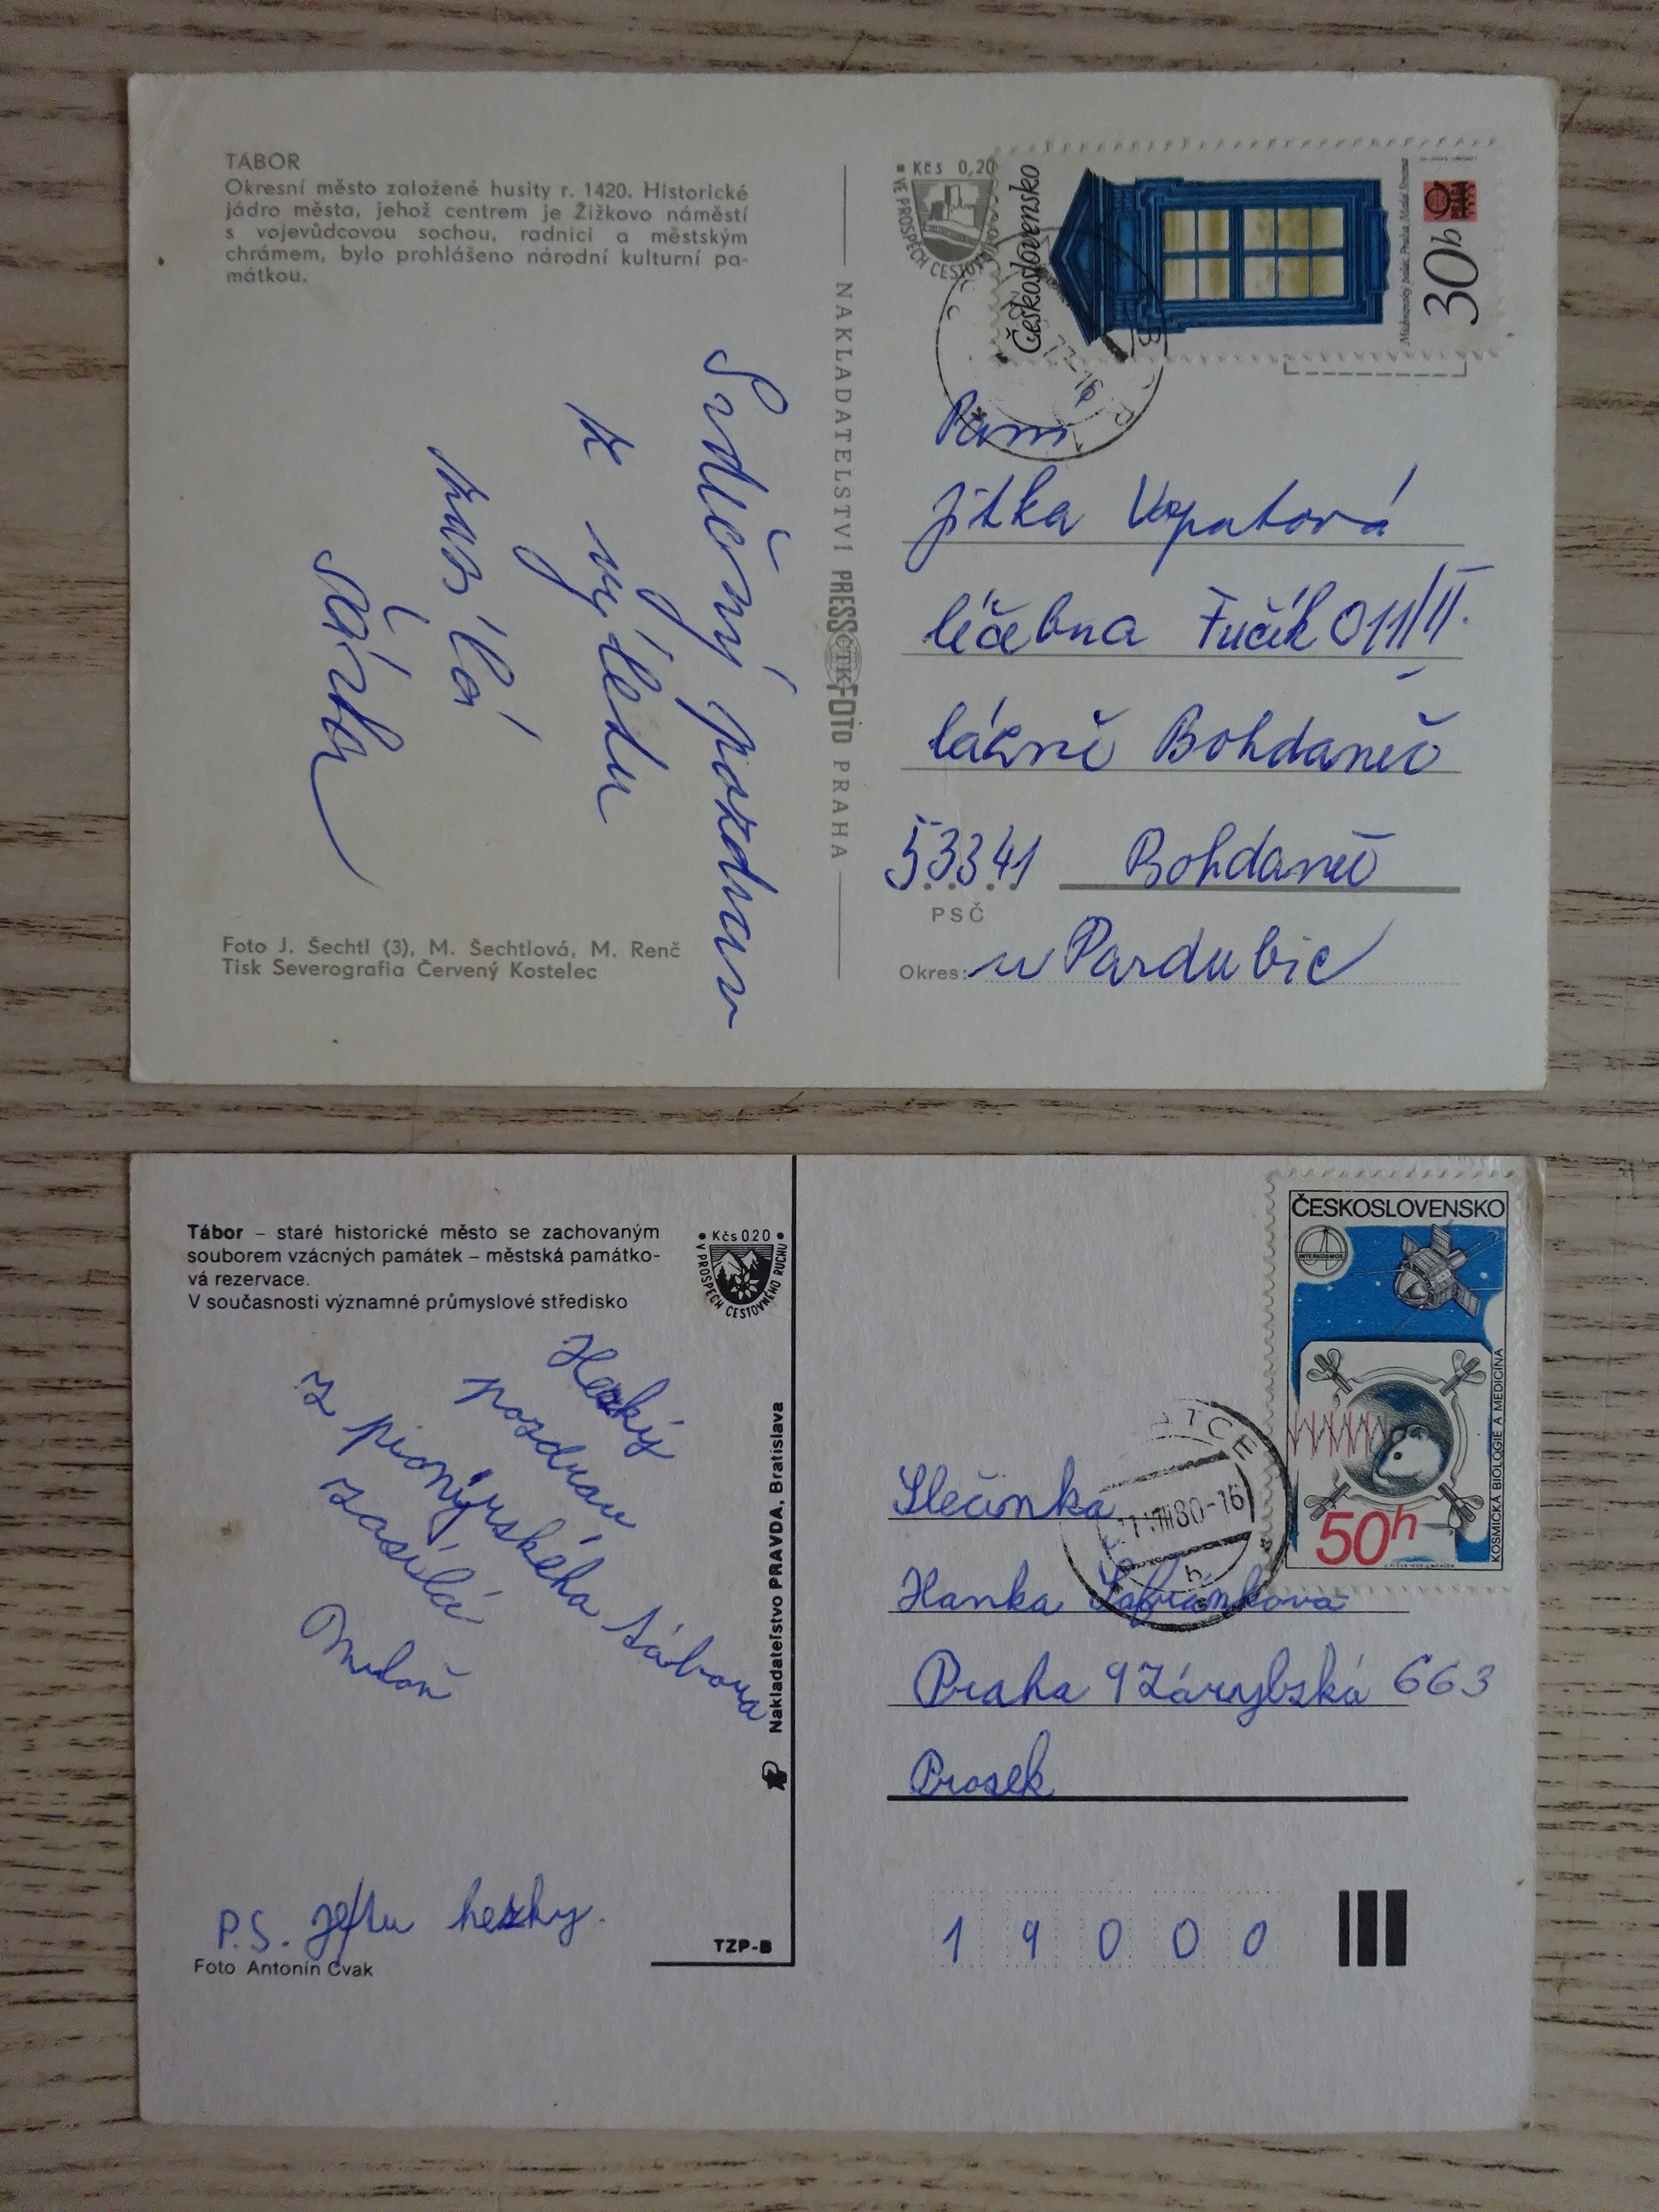 TÁBOR
Okresní město založené husity r. 1420. Historické
jádro města, jehož centrem je Žižkovo náměstí
s vojevůdcovou sochou, radnici a městským
chrámem, bylo prohlášeno národní kulturní pa-
mátkou.
Srdečný pozdrav
z výletu
zasílá
Šárka
Foto J. Šechtl (3), M. Šechtlová, M. Renč
Tisk Severografia Červený Kostelec
NAKLADATELSTVÍ PRESSFOTO PRAHA
ČTK
• Kčs 0,20
VE PROSPĚCH
Československo
Michnovský palác, Praha, Malá Strana
30h
PRAHA
Paní
Jitka Vopatová
léčebna Fučík 011/II.
lázně Bohdaneč
53341 Bohdaneč
PSČ
Okres: u Pardubic
Tábor – staré historické město se zachovaným
souborem vzácných památek – městská památko-
vá rezervace.
V současnosti významné průmyslové středisko
• Kčs 020 •
V PROSPĚCH CESTOVNÉHO RUCHU
Hezký
pozdrav
z pionýrského tábora
zasílá
Miloň
P.S. je tu hezky.
Foto Antonín Cvak
TZP-B
Nakladateľstvo PRAVDA, Bratislava
ČESKOSLOVENSKO
INTERKOSMOS
KOSMICKÁ BIOLOGIE A MEDICÍNA
50h
80-16
Slečinka
Hanka Šafránková
Praha 9 Zárybská 663
Prosek
1 9 0 0 0